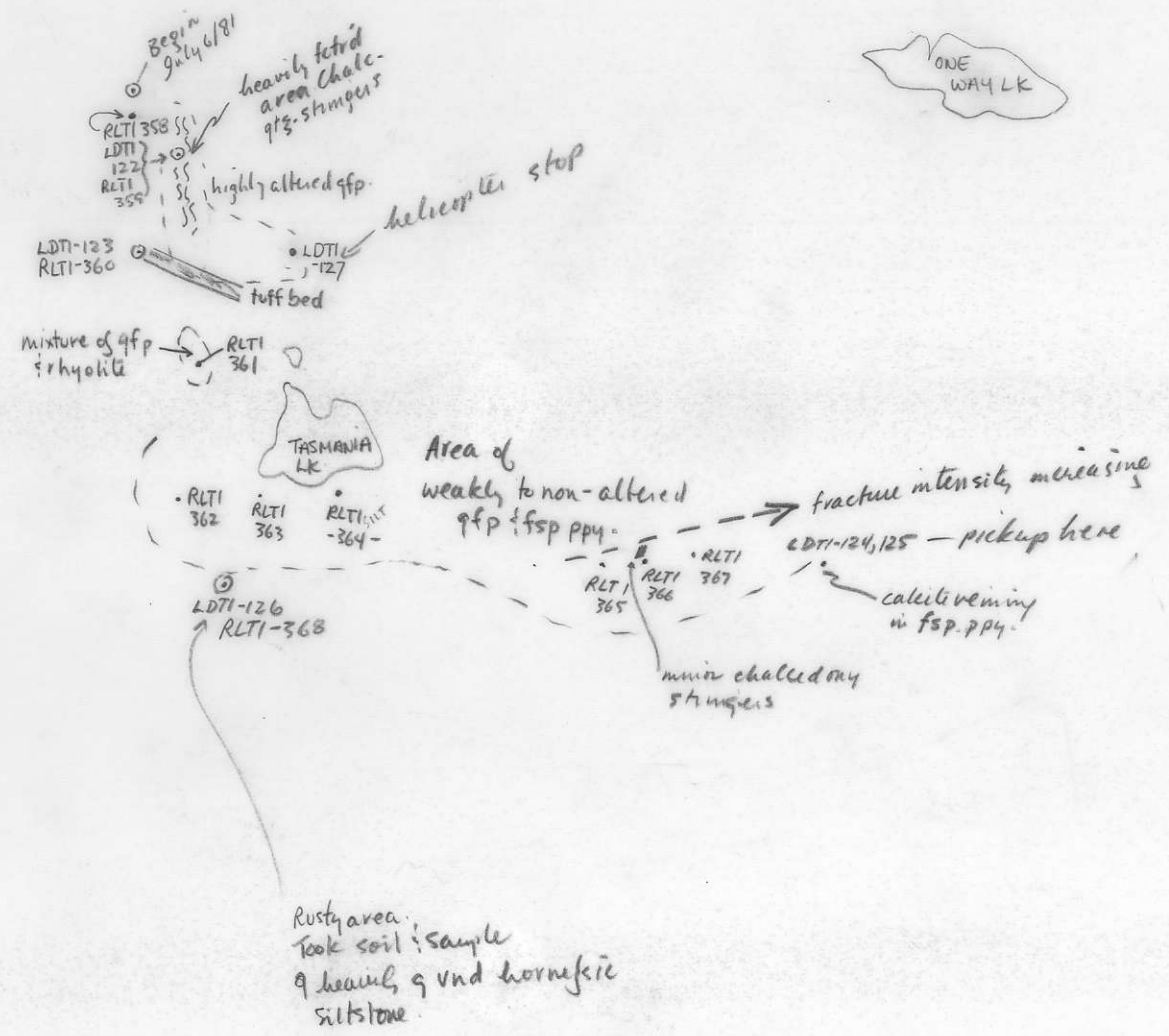 Begin
July 6/81
heavily fctr'd
area Chalc-
qtz-stringers
ONE
WAY LK
RLT1 358
LDT1
122
RLT1
359
highly altered qfp.
helicopter stop
LDT1-123
RLT1-360
LDT1
-127
tuff bed
mixture of qfp
& rhyolite
RLT1
361
TASMANIA
LK
Area of
weakly to non-altered
qfp & fsp ppy.
fracture intensity increasing
RLT1
362
RLT1
363
RLT1 SILT
-364-
RLT1
365
RLT1
366
RLT1
367
LDT1-124,125 — pickup here
calcite veining
in fsp. ppy.
LDT1-126
RLT1-368
minor chalcedony
stringers
Rusty area.
Took soil & sample
of heavily q vnd hornefsic
siltstone.